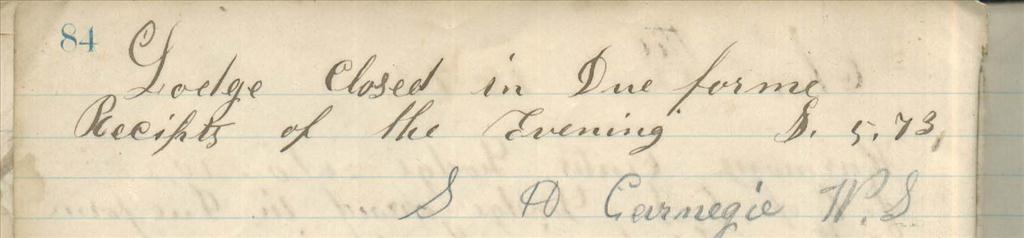 84
Lodge Closed in Due forme
Receipts of the Evening $. 5.73
S D Carnegie W. S